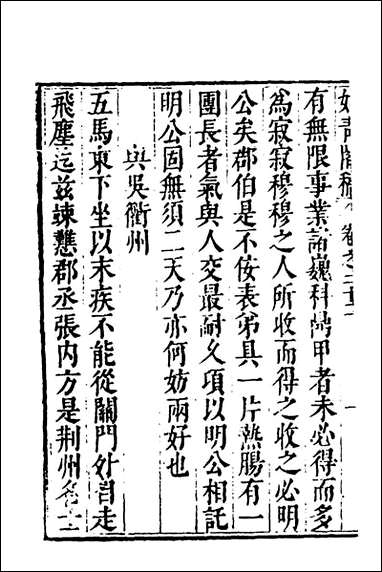 有無限事業諸巍科鼎甲者未必得而多
為寂寂穆穆之人所收而得之收之必明
公矣郡伯是不佞表弟具一片熱腸有一
團長者氣與人交最耐久項以明公相託
明公固無須二天乃亦何妨兩好也
與吳衢州
五馬東下坐以末疾不能從關門外追走
飛塵迄茲竦懟郡丞張内方是荆州名士